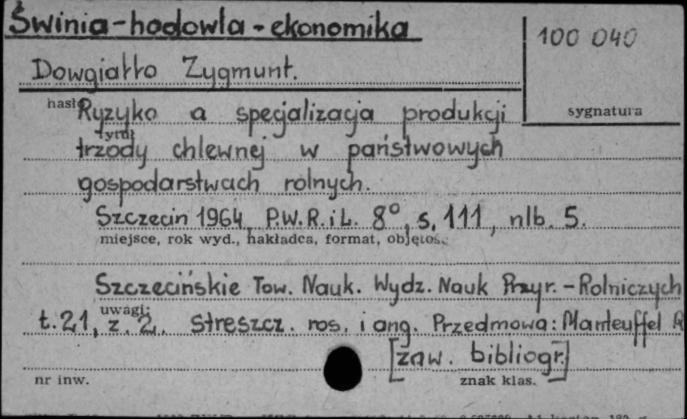 Świnia-hodowla-ekonomika
100 040
Dowgiałło Zygmunt.
hasło
sygnatura
Ryzyko a specjalizacja produkcji
tytuł
trzody chlewnej w państwowych
gospodarstwach rolnych.
Szczecin 1964, P.W.R.iL. 8°, s. 111, nlb. 5.
miejsce, rok wyd., nakładca, format, objętość
Szczecińskie Tow. Nauk. Wydz. Nauk Przyr.-Rolniczych
uwagi:
t.21, z. 2. Streszcz. ros. i ang. Przedmowa: Manteuffel R
[zaw. bibliogr.]
nr inw.
znak klas.